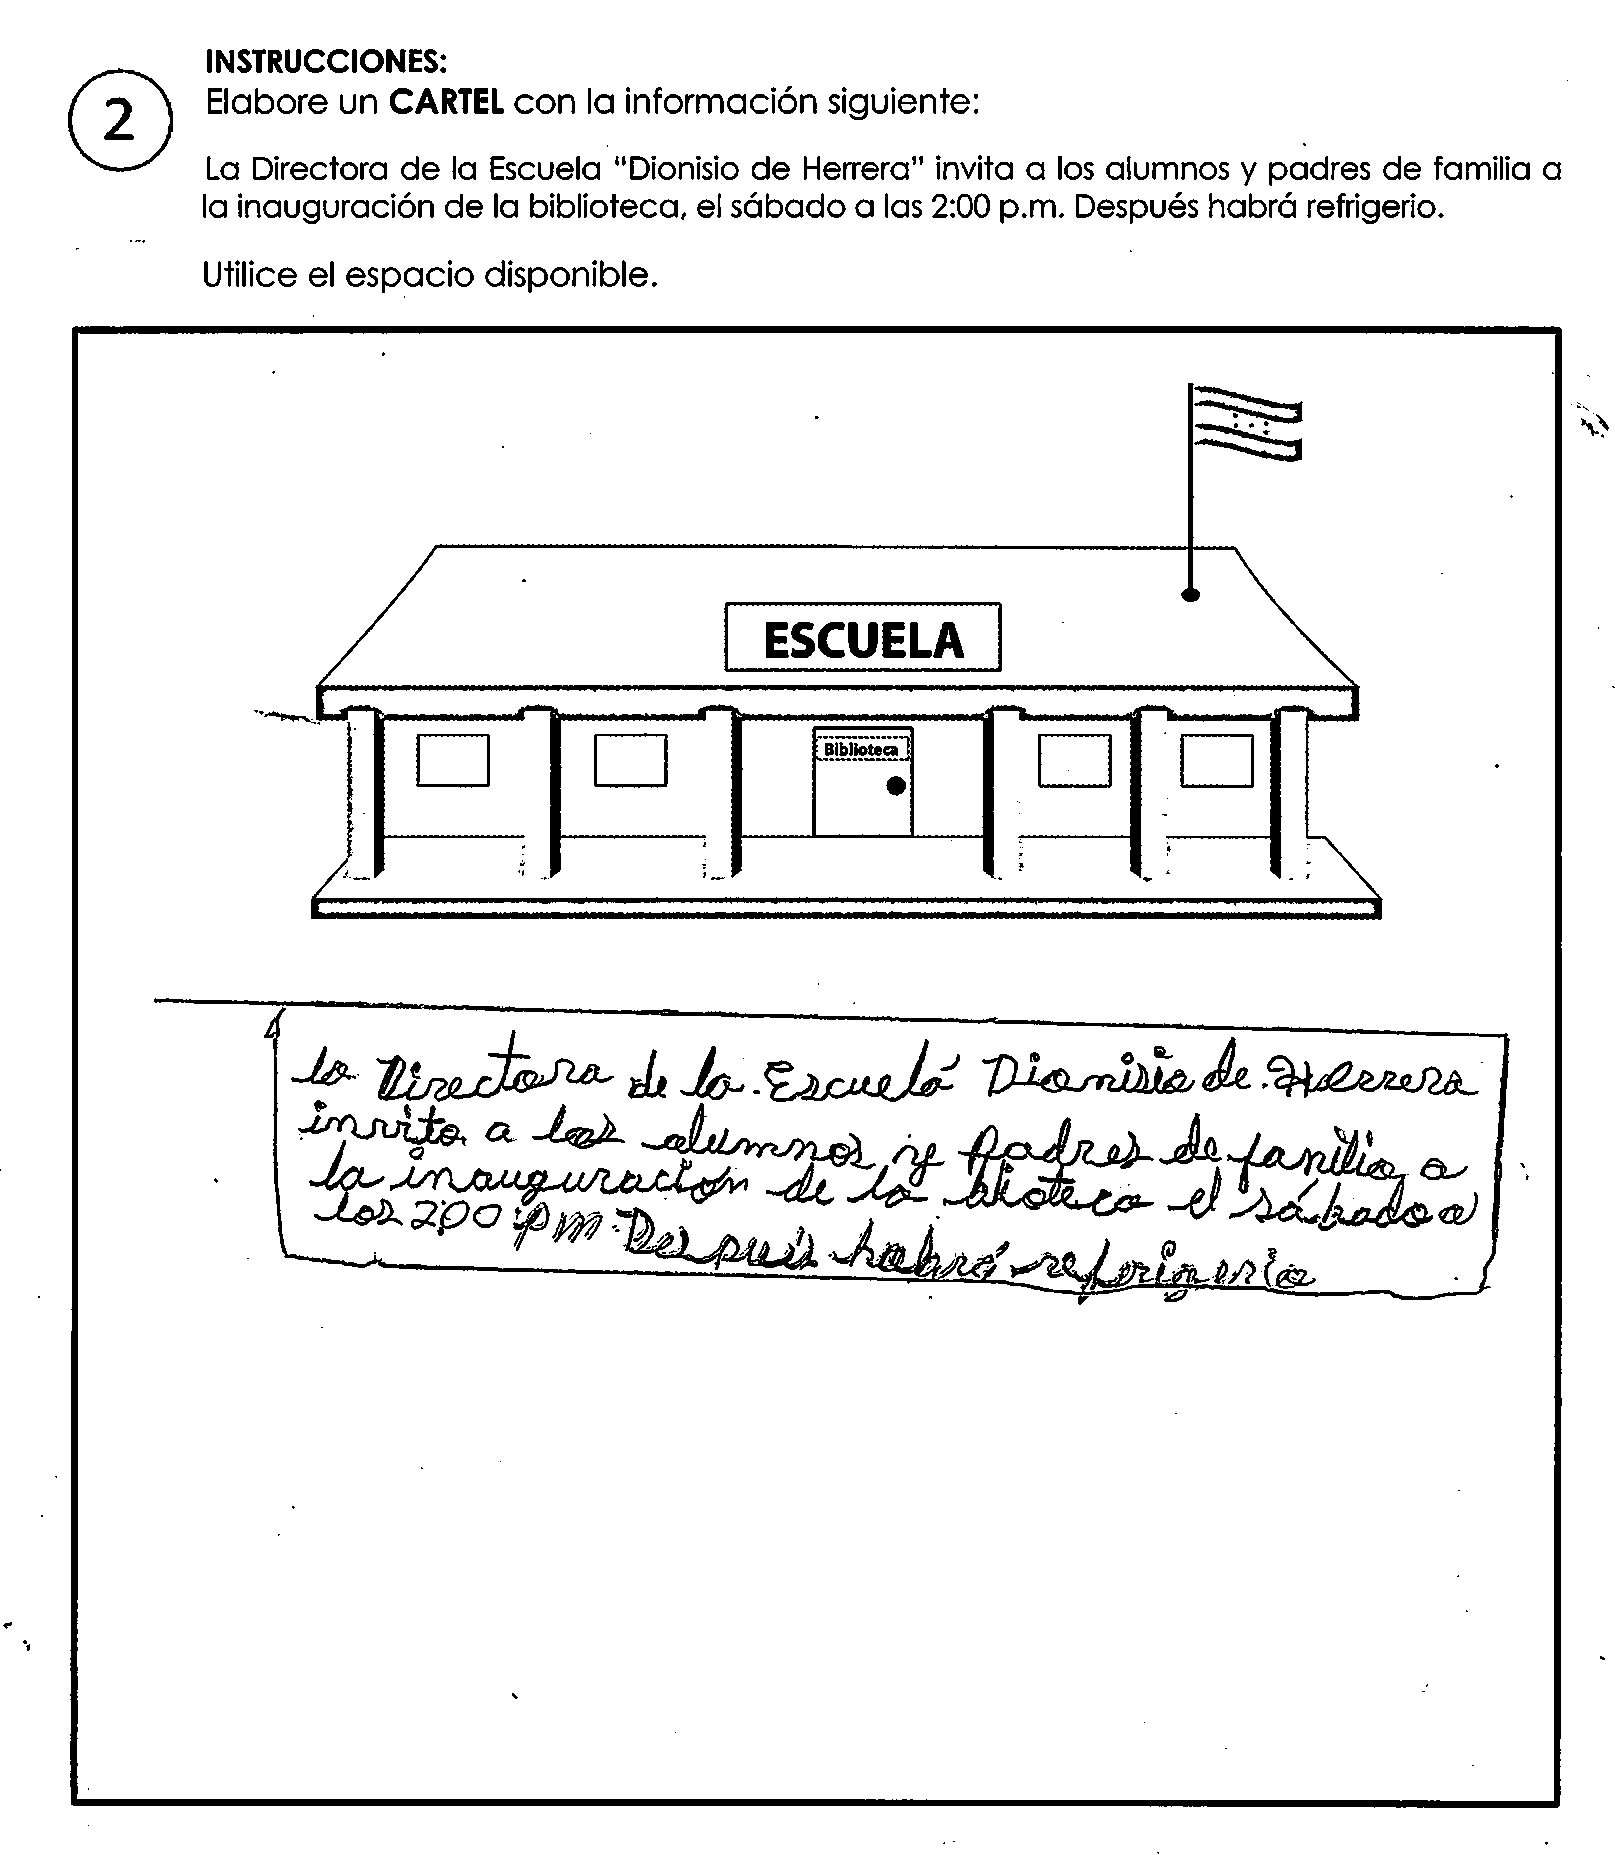 INSTRUCCIONES:
2
Elabore un CARTEL con la información siguiente:
La Directora de la Escuela “Dionisio de Herrera” invita a los alumnos y padres de familia a
la inauguración de la biblioteca, el sábado a las 2:00 p.m. Después habrá refrigerio.
Utilice el espacio disponible.
ESCUELA
Biblioteca
la Directora de la Escuelá Dionisio de Herrera
invita a los alumnos y padres de familia a
la inauguración de la blioteca el sábado a
las 2,00 pm. Después habrá refrigerio